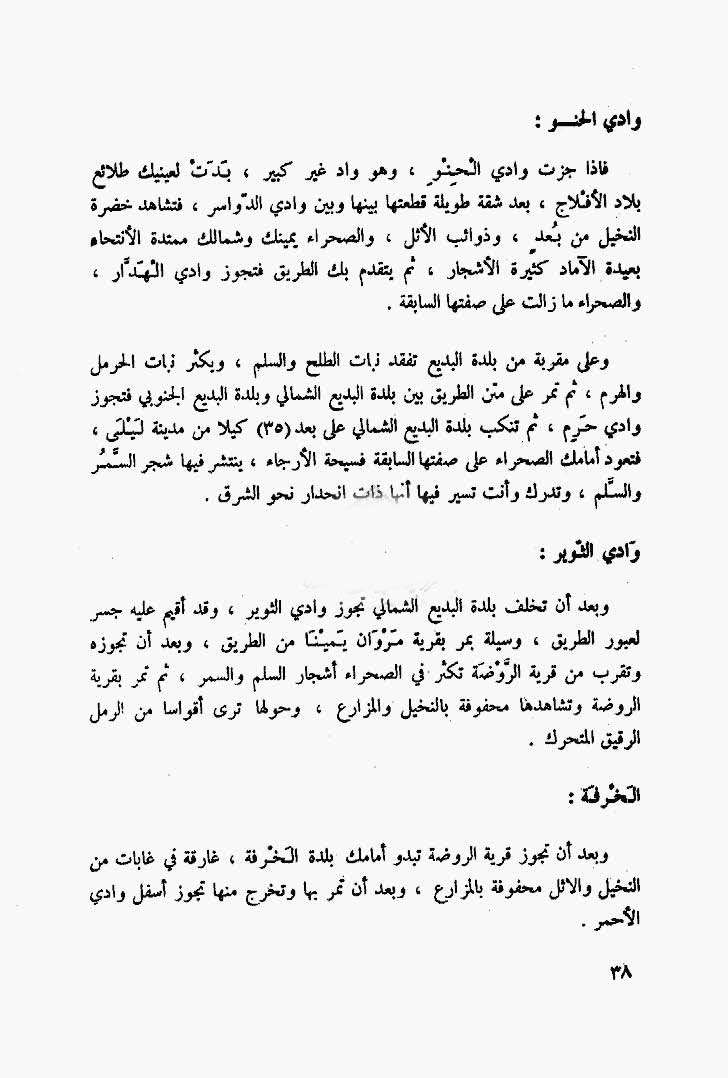 وادي الحنـــو :
فاذا جزت وادي الْحِنْوِ ، وهو واد غير كبير ، بَدَتْ لعينيك طلائع
بلاد الأفْلاج ، بعد شقة طويلة قطعتها بينها وبين وادي الدّواسر ، فتشاهد خضرة
النخيل من بُعدٍ ، وذوائب الأثل ، والصحراء يمينك وشمالك ممتدة الأنتحاء
بعيدة الآماد كثيرة الأشجار ، ثم يتقدم بك الطريق فتجوز وادي الْهَدَّار ،
والصحراء ما زالت على صفتها السابقة .
وعلى مقربة من بلدة البديع تفقد نبات الطلح والسلم ، ويكثر نبات الحرمل
والهرم ، ثم تمر على متن الطريق بين بلدة البديع الشمالي وبلدة البديع الجنوبي فتجوز
وادي حَرِم ، ثم تنكب بلدة البديع الشمالي على بعد (٣٥) كيلا من مدينة لَيْلَى ،
فتعود أمامك الصحراء على صفتها السابقة فسيحة الأرجاء ، ينتشر فيها شجر السَّمُر
والسَّلم ، وتدرك وأنت تسير فيها أنها ذات انحدار نحو الشرق .
وَادي الثوير :
وبعد أن تخلف بلدة البديع الشمالي تجوز وادي الثوير ، وقد أقيم عليه جسر
لعبور الطريق ، وسيلة يمر بقرية مَرْوَان يَمِيْنَا من الطريق ، وبعد أن تجوزه
وتقرب من قرية الرَّوْضَة تكثر في الصحراء أشجار السلم والسمر ، ثم تمر بقرية
الروضة وتشاهدها محفوفة بالنخيل والمزارع ، وحولها ترى أقواسا من الرمل
الرقيق المتحرك .
الْخَرْفَة :
وبعد أن تجوز قرية الروضة تبدو أمامك بلدة الْخَرْفة ، غارقة في غابات من
النخيل والاثل محفوفة بالمزارع ، وبعد أن تمر بها وتخرج منها تجوز أسفل وادي
الأحمر .
٣٨